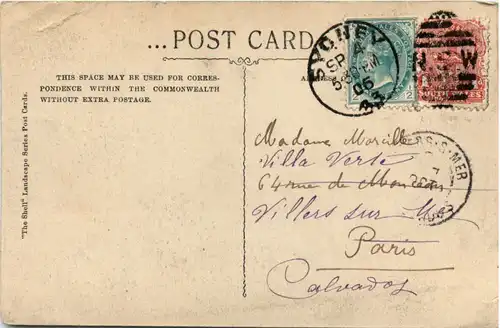 ... POST CARD
THIS SPACE MAY BE USED FOR CORRES-
PONDENCE WITHIN THE COMMONWEALTH
WITHOUT EXTRA POSTAGE.
"The Shell" Landscape Series Post Cards.
SYDNEY
SP 4
05
N. S. W
Madame
Villa Verte
64 rue de Monceau
Villers sur Mer
Paris
Calvados
S-MER